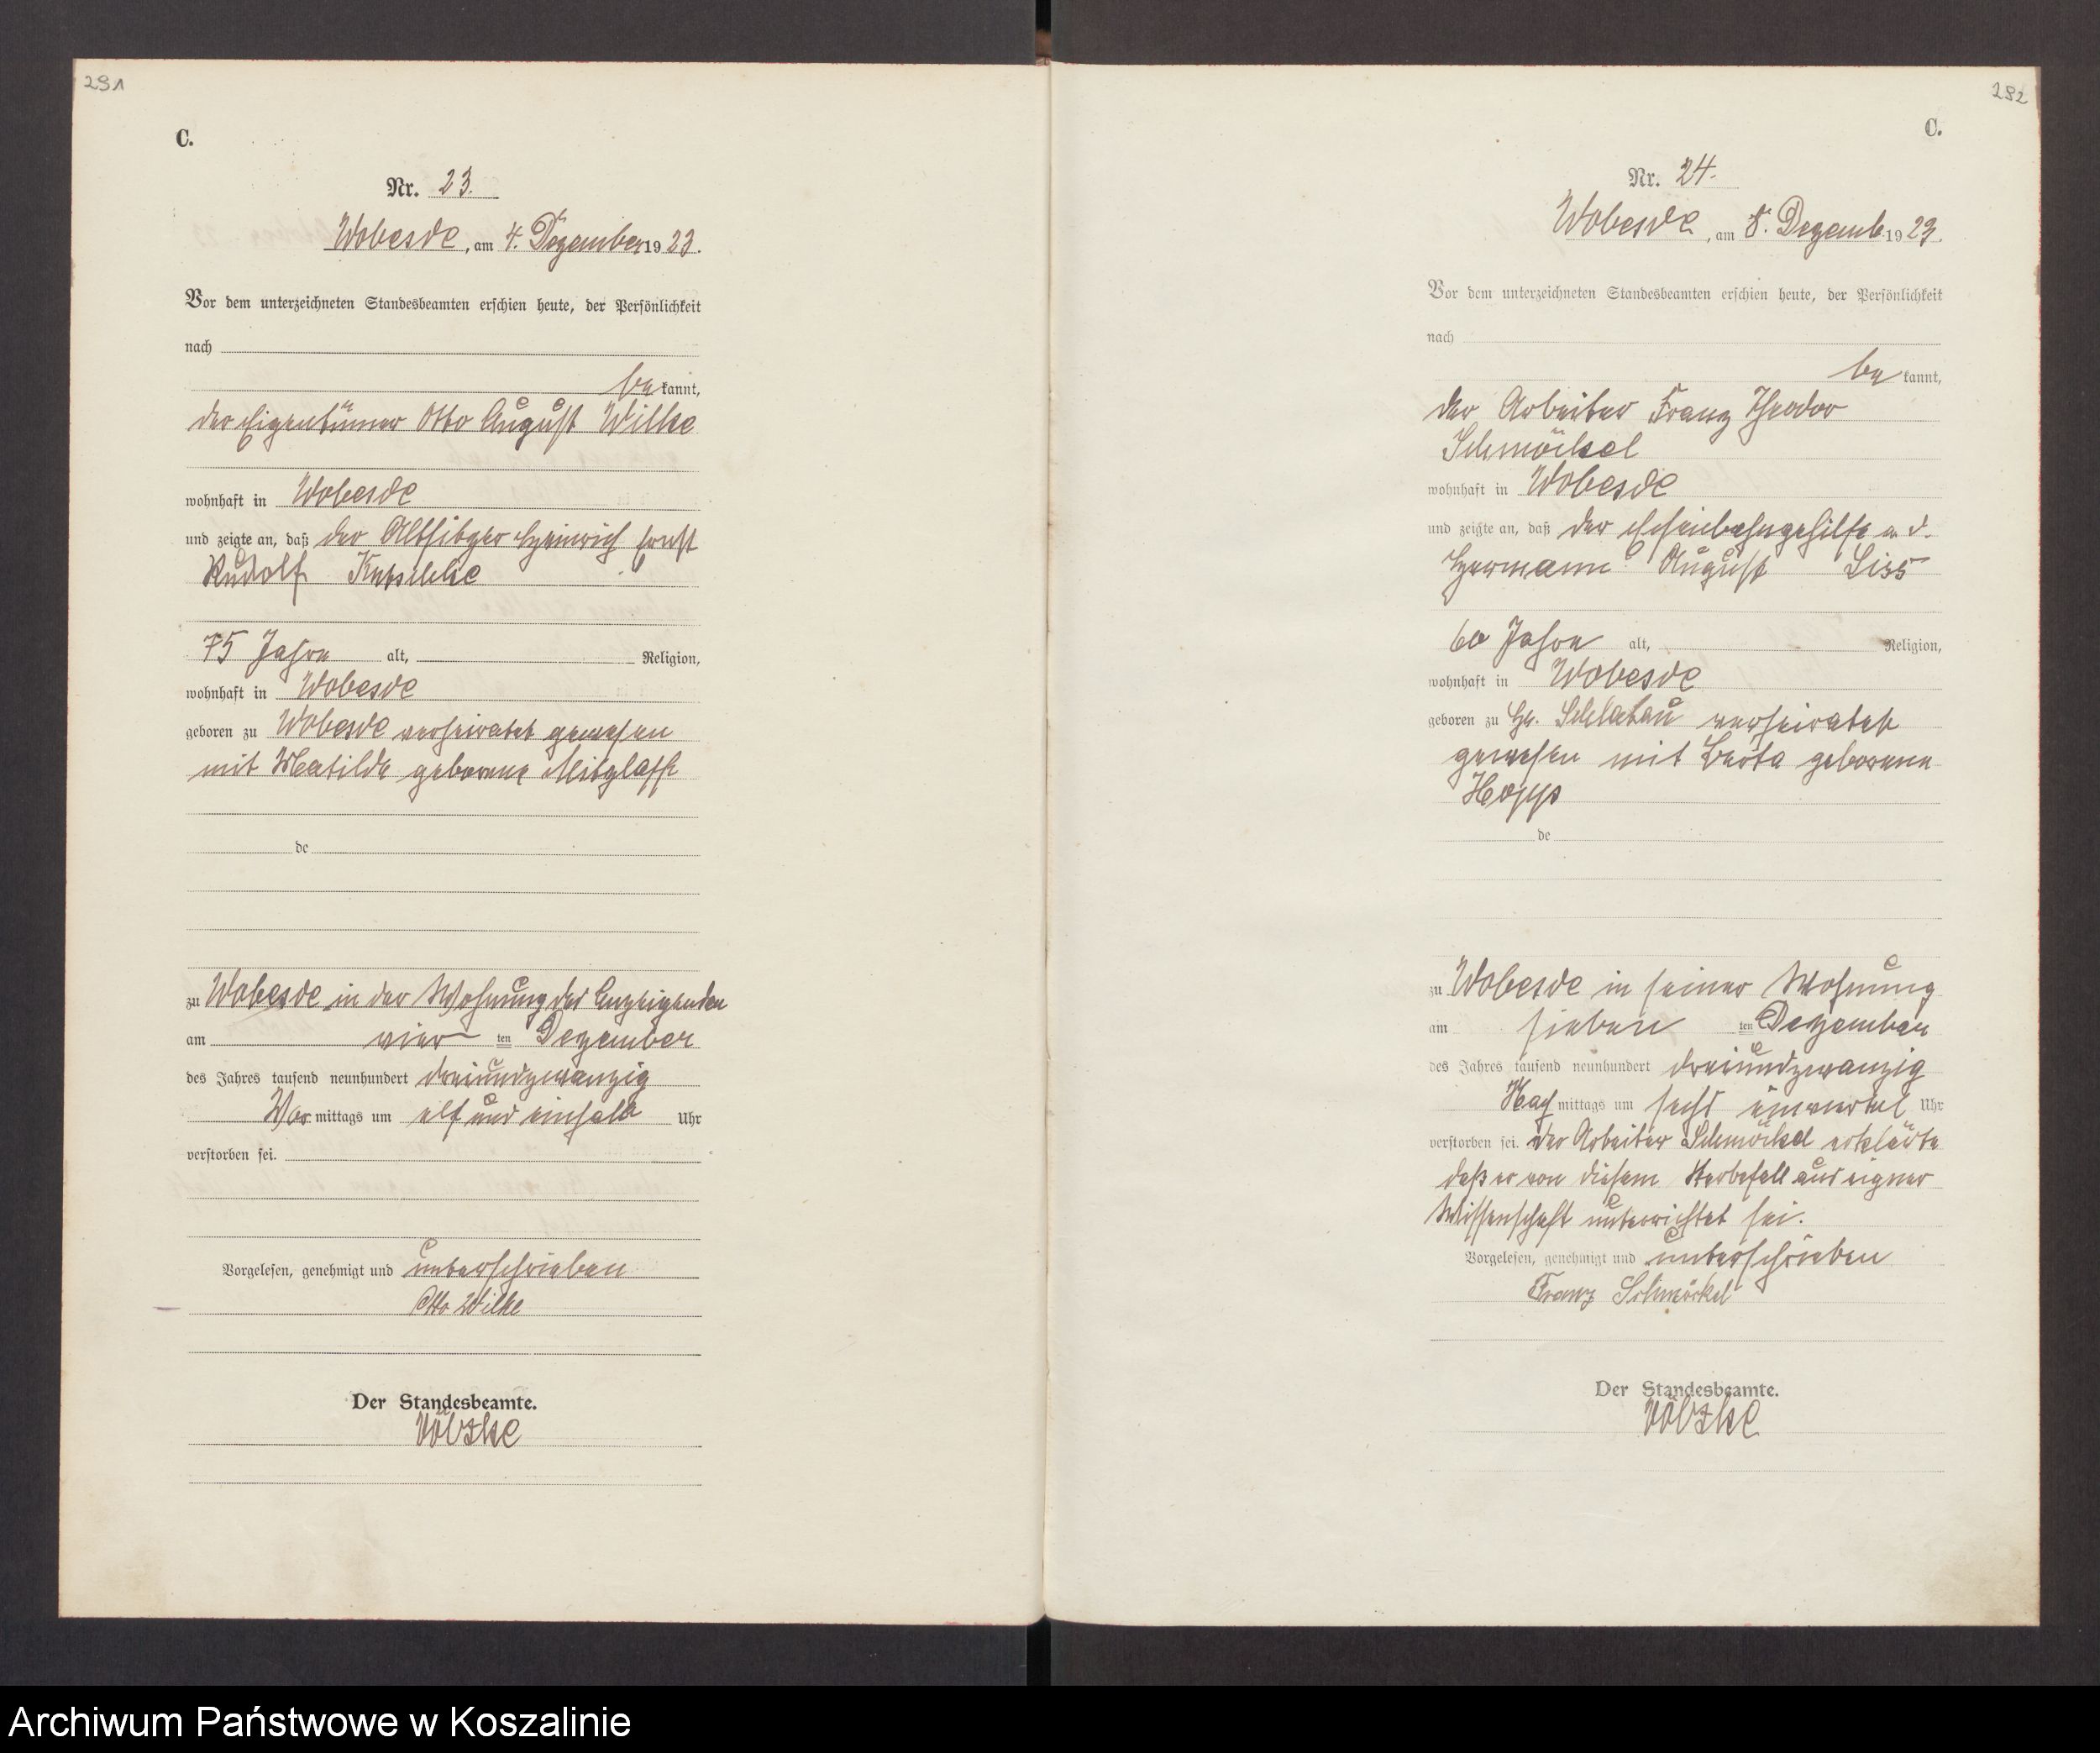 291
C.
Nr. 23.
Wobesde, am 4. Dezember 1923.
Vor dem unterzeichneten Standesbeamten erschien heute, der Persönlichkeit
nach
be kannt,
der Eigentümer Otto August Wilke
wohnhaft in Wobesde
und zeigte an, daß der Altsitzer Heinrich Ernst
Rudolf
75 Jahre alt, Religion,
wohnhaft in Wobesde
geboren zu Wobesde verheiratet gewesen
mit Matilde geborene Mitzlaff
de
zu Wobesde in der Wohnung des Anzeigenden
am vier ten Dezember
des Jahres tausend neunhundert dreiundzwanzig
Vor mittags um elf und einhalb Uhr
verstorben sei.
Vorgelesen, genehmigt und unterschrieben
Otto Wilke
Der Standesbeamte.
Völzke
292
C.
Nr. 24.
Wobesde, am 8. Dezemb. 1923.
Vor dem unterzeichneten Standesbeamten erschien heute, der Persönlichkeit
nach
be kannt,
der Arbeiter Franz Theodor
Schmöckel
wohnhaft in Wobesde
und zeigte an, daß der Eisenbahngehilfe a. d.
Hermann August Liss
60 Jahre alt, Religion,
wohnhaft in Wobesde
geboren zu Gr. Schlatau verheiratet
gewesen mit Berta geborene
Hopp
de
zu Wobesde in seiner Wohnung
am sieben ten Dezember
des Jahres tausend neunhundert dreiundzwanzig
Nach mittags um sechs einviertel Uhr
verstorben sei. Der Arbeiter Schmöckel erklärte
daß er von diesem Sterbefall aus eigner
Wissenschaft unterrichtet sei.
Vorgelesen, genehmigt und unterschrieben
Franz Schmöckel
Der Standesbeamte.
Völzke
Archiwum Państwowe w Koszalinie